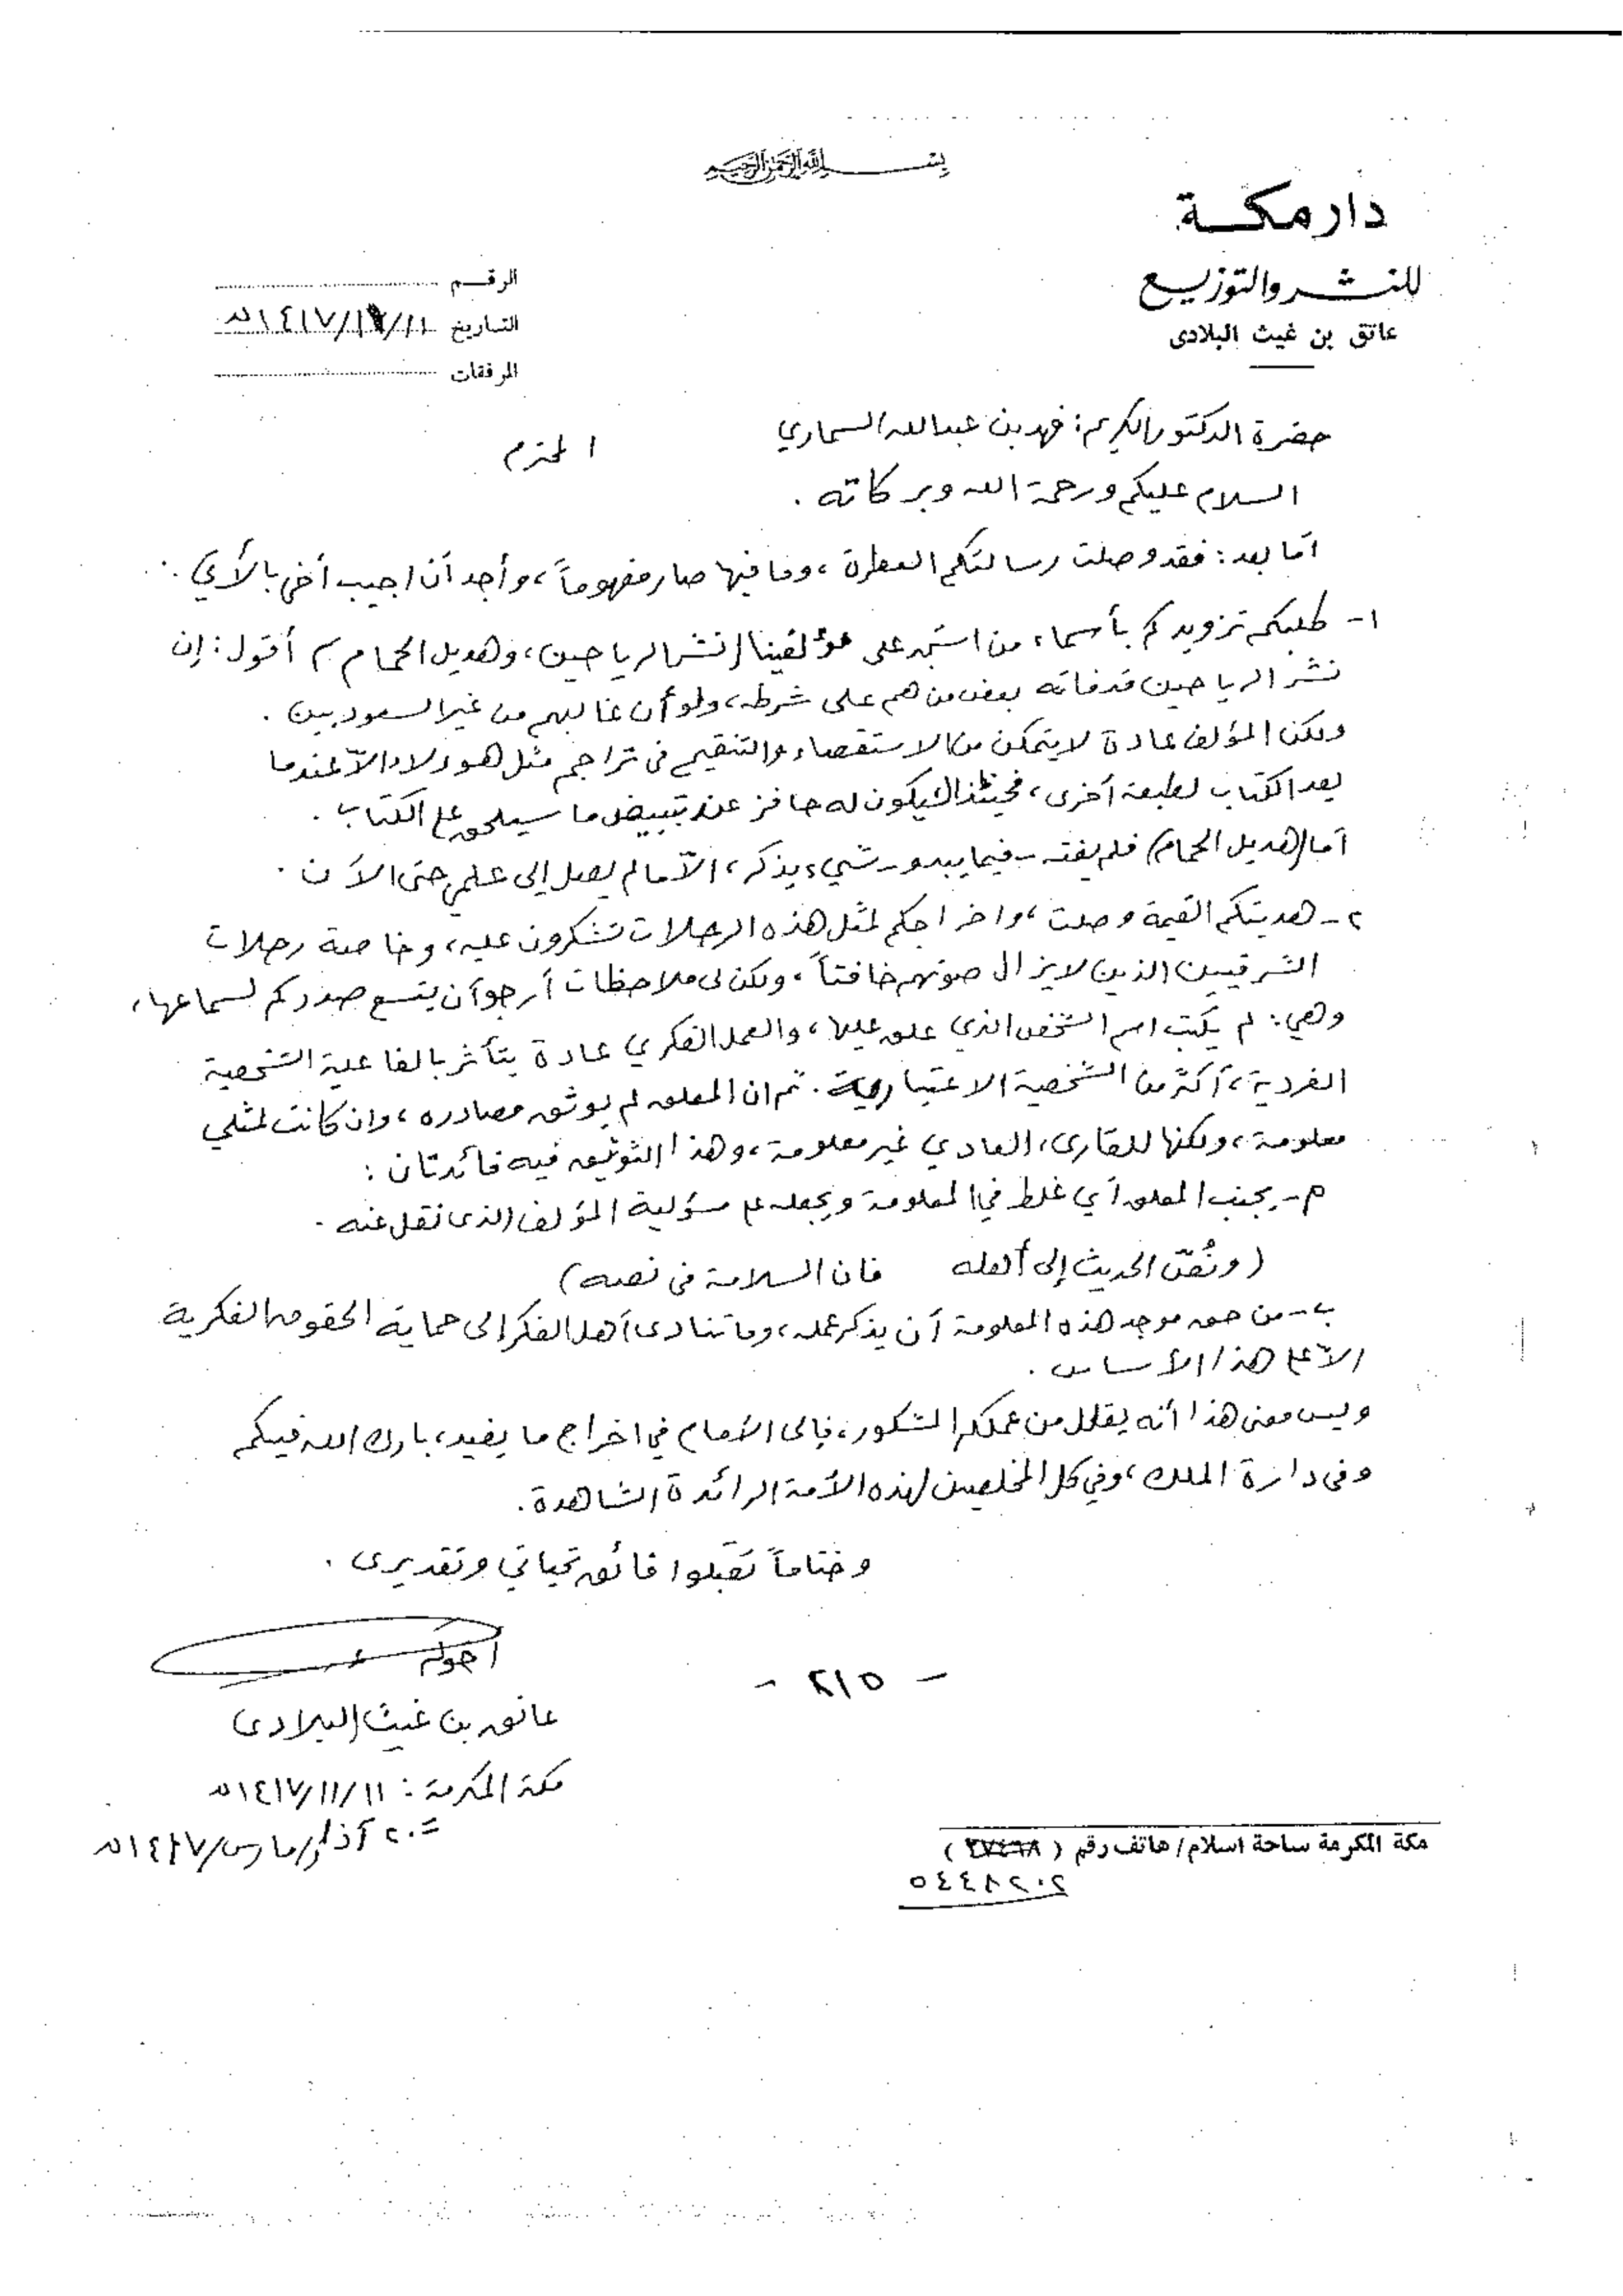 بسم الله الرحمن الرحيم
دار مكة
للنشر والتوزيع
عاتق بن غيث البلادى
الرقم
التاريخ ١١/١١/١٤١٧هـ
المرفقات
حضرة الدكتور الكريم: فهد بن عبدالله السماري المحترم
السلام عليكم ورحمة الله وبركاته .
أمّا بعد: فقد وصلت رسالتكم العطرة، وما فيها صار مفهوماً، وأجد أن اجيب أخي بالآتي :
١- طلبكم تزويدكم بأسماء من استجد على مؤلفينا (نشر الرياحين، وهديل الحمام) أقول: إن
نشر الرياحين قد فاته بعض من هم على شرطه، ولو أن غالبهم من غير السعوديين .
ولكن المؤلف عادة لا يتمكن من الاستقصاء والتنقيح فى تراجم مثل هؤلاء الاّ عندما
يعد الكتاب لطبعة أخرى، فحينئذ يكون له حافز عند تبييض ما سيلحق على الكتاب .
أما (هديل الحمام) فلم يفته - فيما يبدو - شيء يذكر، الاّ ما لم يصل إلى علمي حتى الآن .
٢- هديتكم القيمة وصلت، واخراجكم لمثل هذه الرحلات تشكرون عليه، وخاصة رحلات
الشرقيين الذين لا يزال صوتهم خافتاً، ولكن لى ملاحظات أرجو أن يتسع صدركم لسماعها،
وهي: لم يكتب اسم الشخص الذي علق عليها، والعمل الفكري عادة يتأثر بالفاعلية الشخصية
الفردية، أكثر من الشخصية الاعتبارية. ثم ان المعلق لم يوثق مصادره، وان كانت لمثلي
معلومة، ولكنها للقارىء العادي غير معلومة، وهذا التوثيق فيه فائدتان :
م- يجنب المعلق أي غلط في المعلومة ويجعله على مسؤلية المؤلف الذى نقل عنه .
(ونُصّ الحديث إلى أهله فان السلامة فى نصه)
ب- من حق موجد هذه المعلومة أن يذكر عمله، وما تنادى أهل الفكر الى حماية الحقوق الفكرية
الاّ على هذا الأساس .
وليس معنى هذا أنه يقلل من عملكم المشكور، فإلى الأمام في اخراج ما يفيد، بارك الله فيكم
وفى دارة الملك، وفي كل المخلصين لهذه الأمة الرائدة الشاهدة.
وختاماً تقبّلوا فائق تحياتي وتقديرى .
اخوكم
عاتق بن غيث البلادى
- ٢١٥ -
مكة المكرمة : ١١/١١/١٤١٧هـ
= ٢٠ آذار/مارس/١٤١٧هـ
مكة المكرمة ساحة اسلام / هاتف رقم ( ٢٧٤٦٨ )
٥٤٤٨٢٠٢